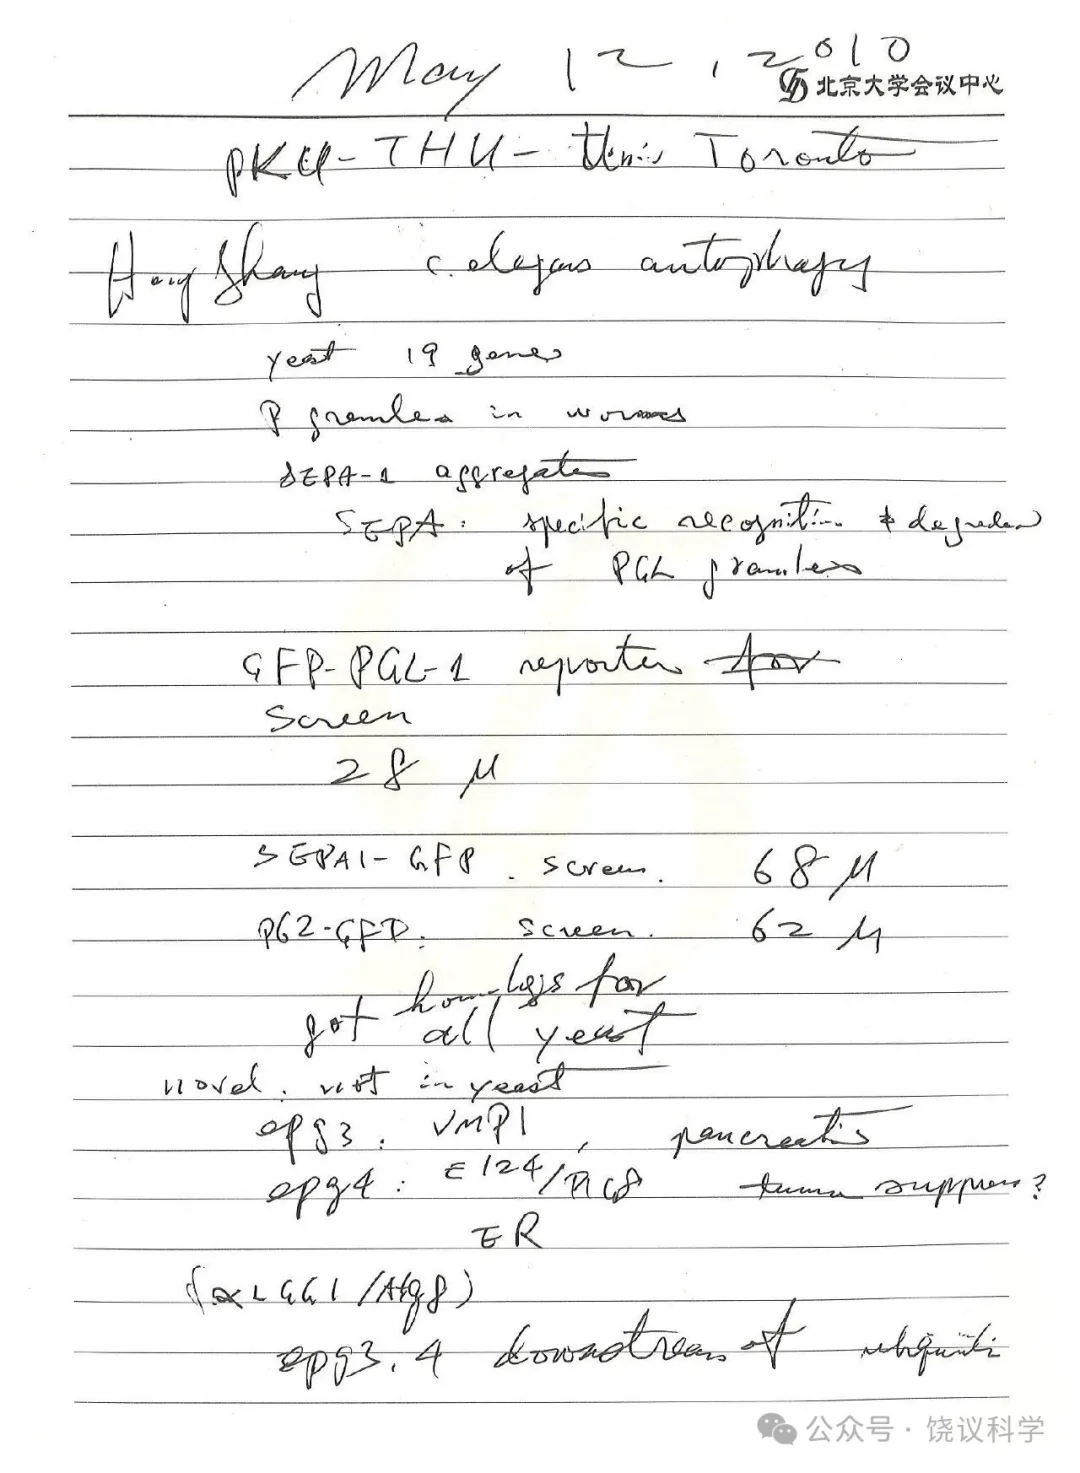 May 12, 2010
北京大学会议中心
PKU-THU-Univ Toronto
Hong Zhang C. elegans autophagy
yeast 19 genes
P granules in worms
SEPA-1 aggregates
SEPA: specific recognition & degrada
of PGL granules
GFP-PGL-1 reporter for
Screen
28 M
SEPA1-GFP. screen. 68 M
P62-GFP: screen. 62 M
got homologs for
all yeast
novel: not in yeast
epg3: VMP1, pancreatitis
epg4: EI24/PIG8 tumor suppress?
ER
(αLGG1/Atg8)
epg3.4 downstream of ubiquitin
公众号·饶议科学